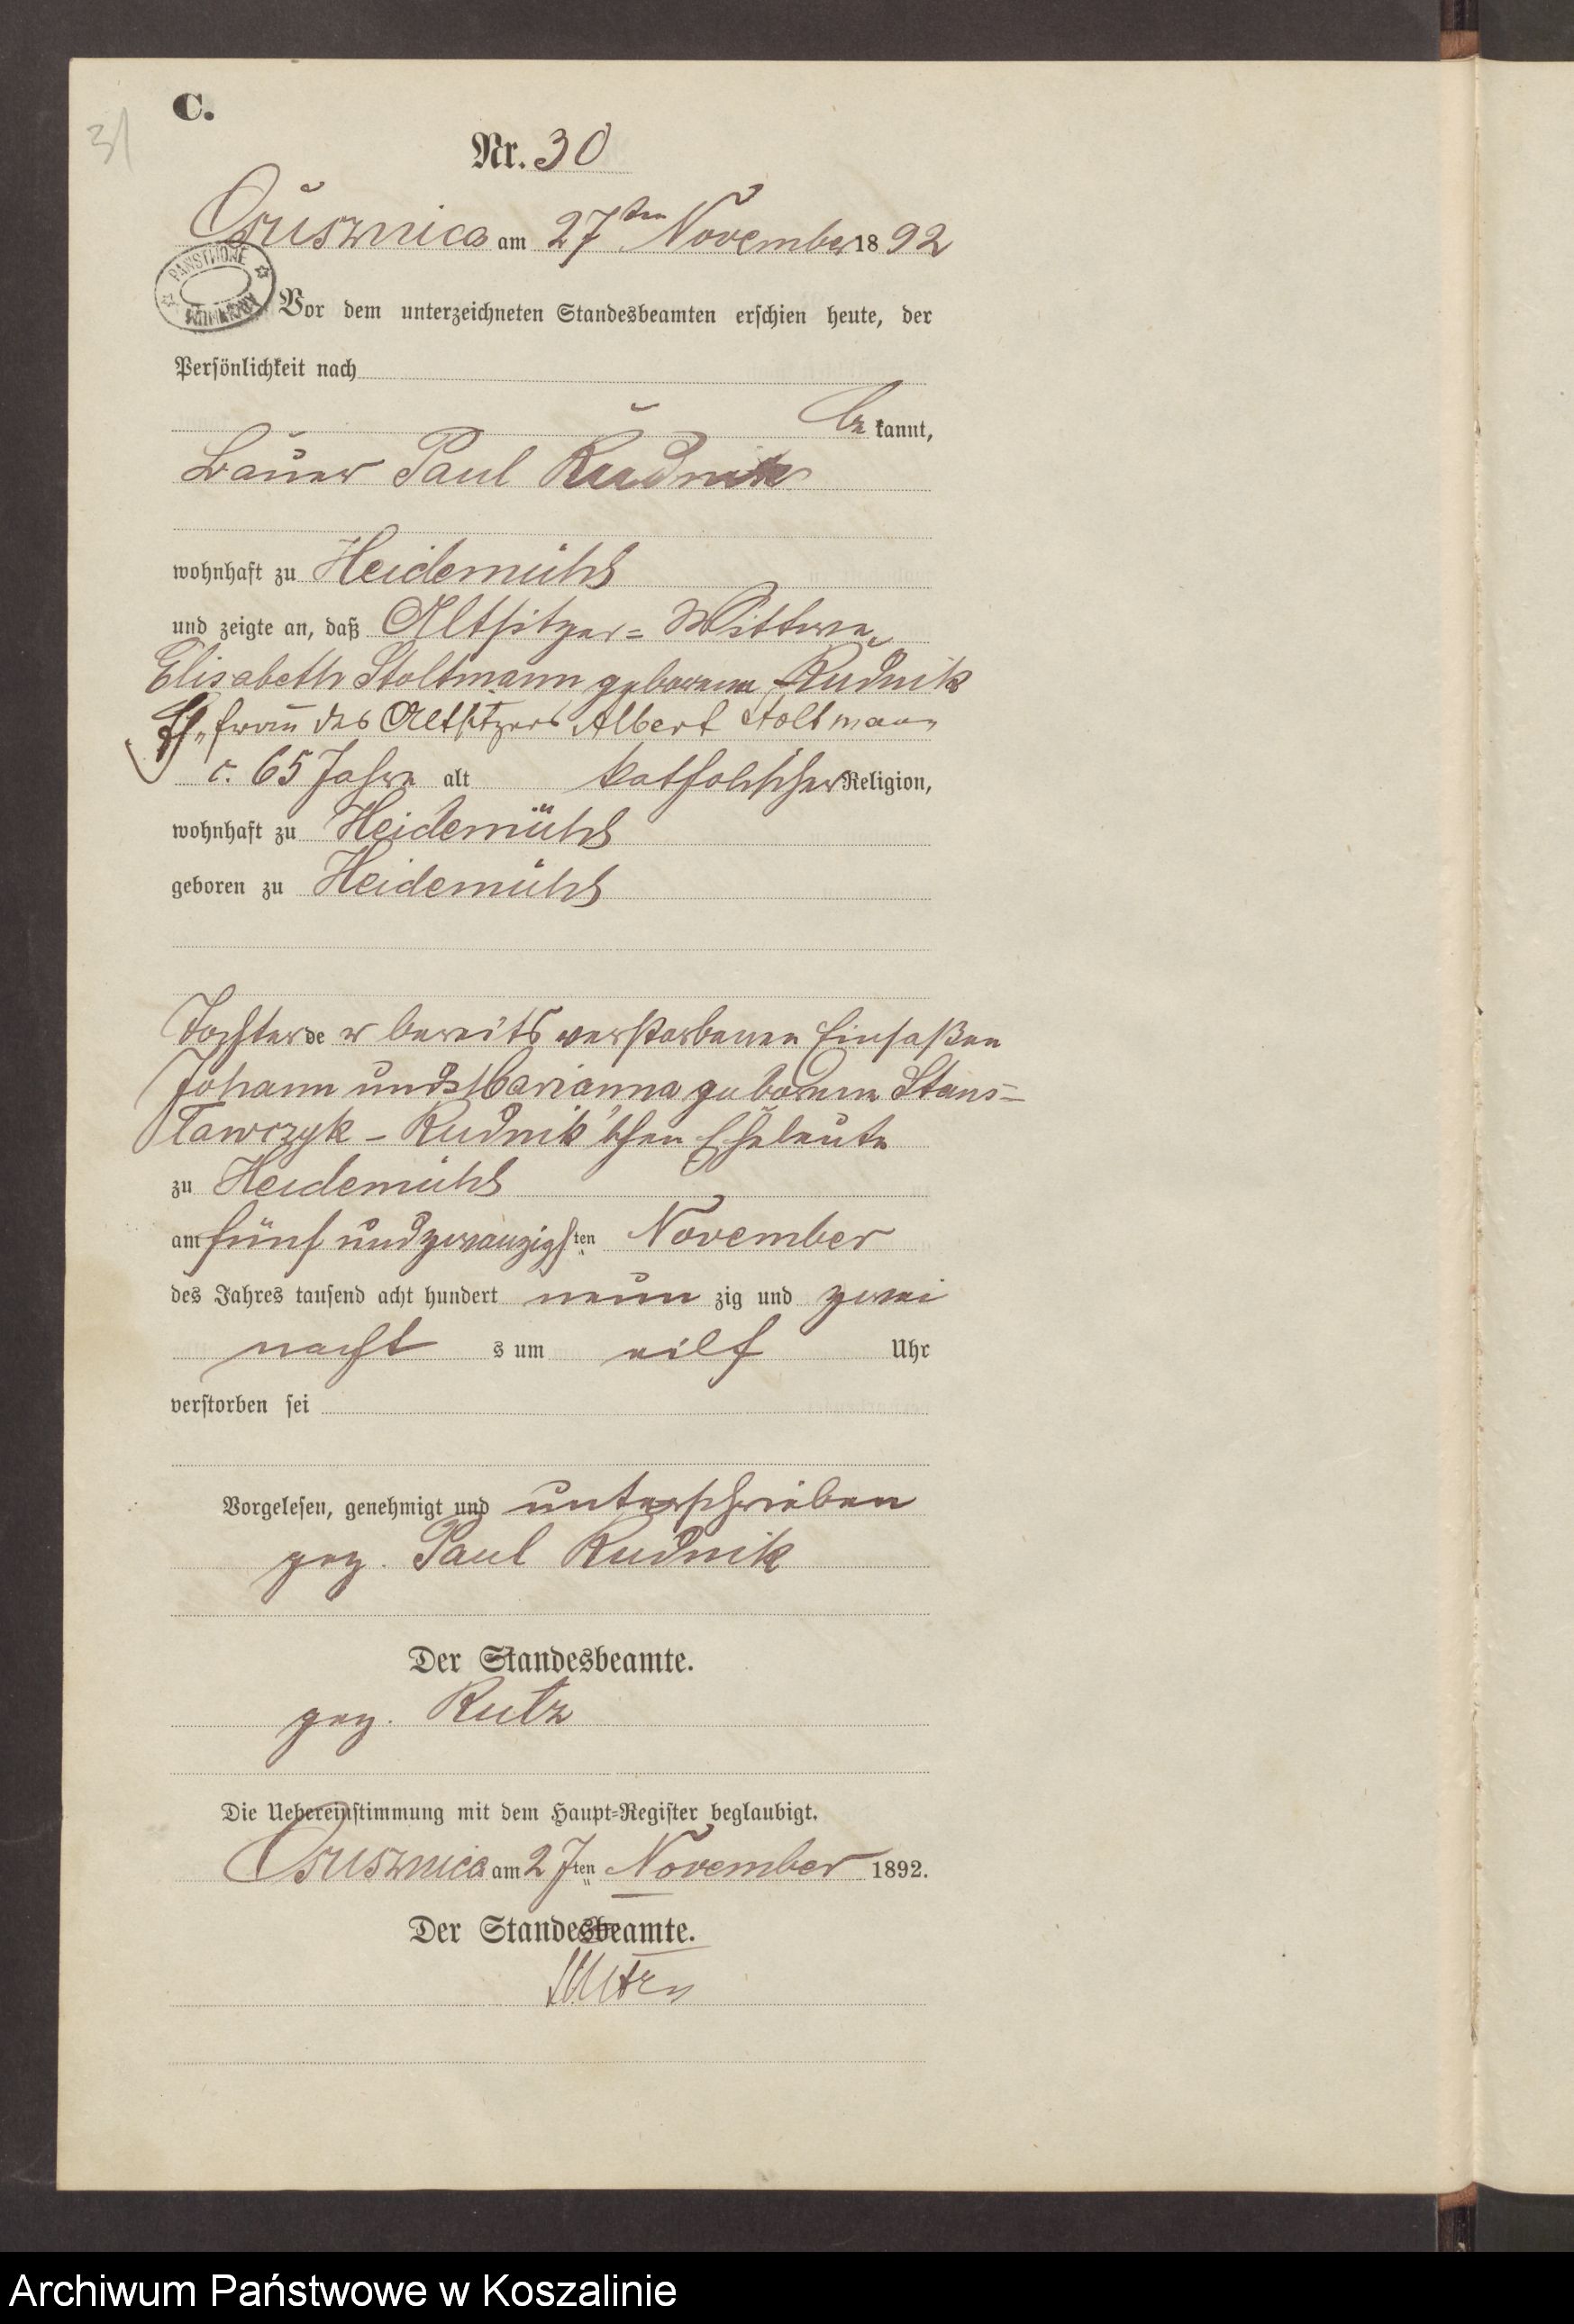 31
C.
Nr. 30
Osusznica am 27ten November 1892
PAŃSTWOWE
Vor dem unterzeichneten Standesbeamten erschien heute, der
Persönlichkeit nach
be kannt,
Bauer Paul Rudnik
wohnhaft zu Heidemühl
und zeigte an, daß Altsitzer- Wittwe,
Elisabeth Stoltmann geborene Rudnik
Ehefrau des Altsitzers Albert Stoltmann
c. 65 Jahre alt katholischer Religion,
wohnhaft zu Heidemühl
geboren zu Heidemühl
Tochter der bereits verstorbenen Einsaßen
Johann und Marianna geborene Stans-
lawczyk - Rudnik'schen Eheleute
zu Heidemühl
am fünf und zwanzigsten November
des Jahres tausend acht hundert neun zig und zwei
nacht s um eilf Uhr
verstorben sei
Vorgelesen, genehmigt und unterschrieben
gez. Paul Rudnik
Der Standesbeamte.
gez. Rutz
Die Uebereinstimmung mit dem Haupt-Register beglaubigt.
Osusznica am 27ten November 1892.
Der Standesbeamte.
Rutz
Archiwum Państwowe w Koszalinie